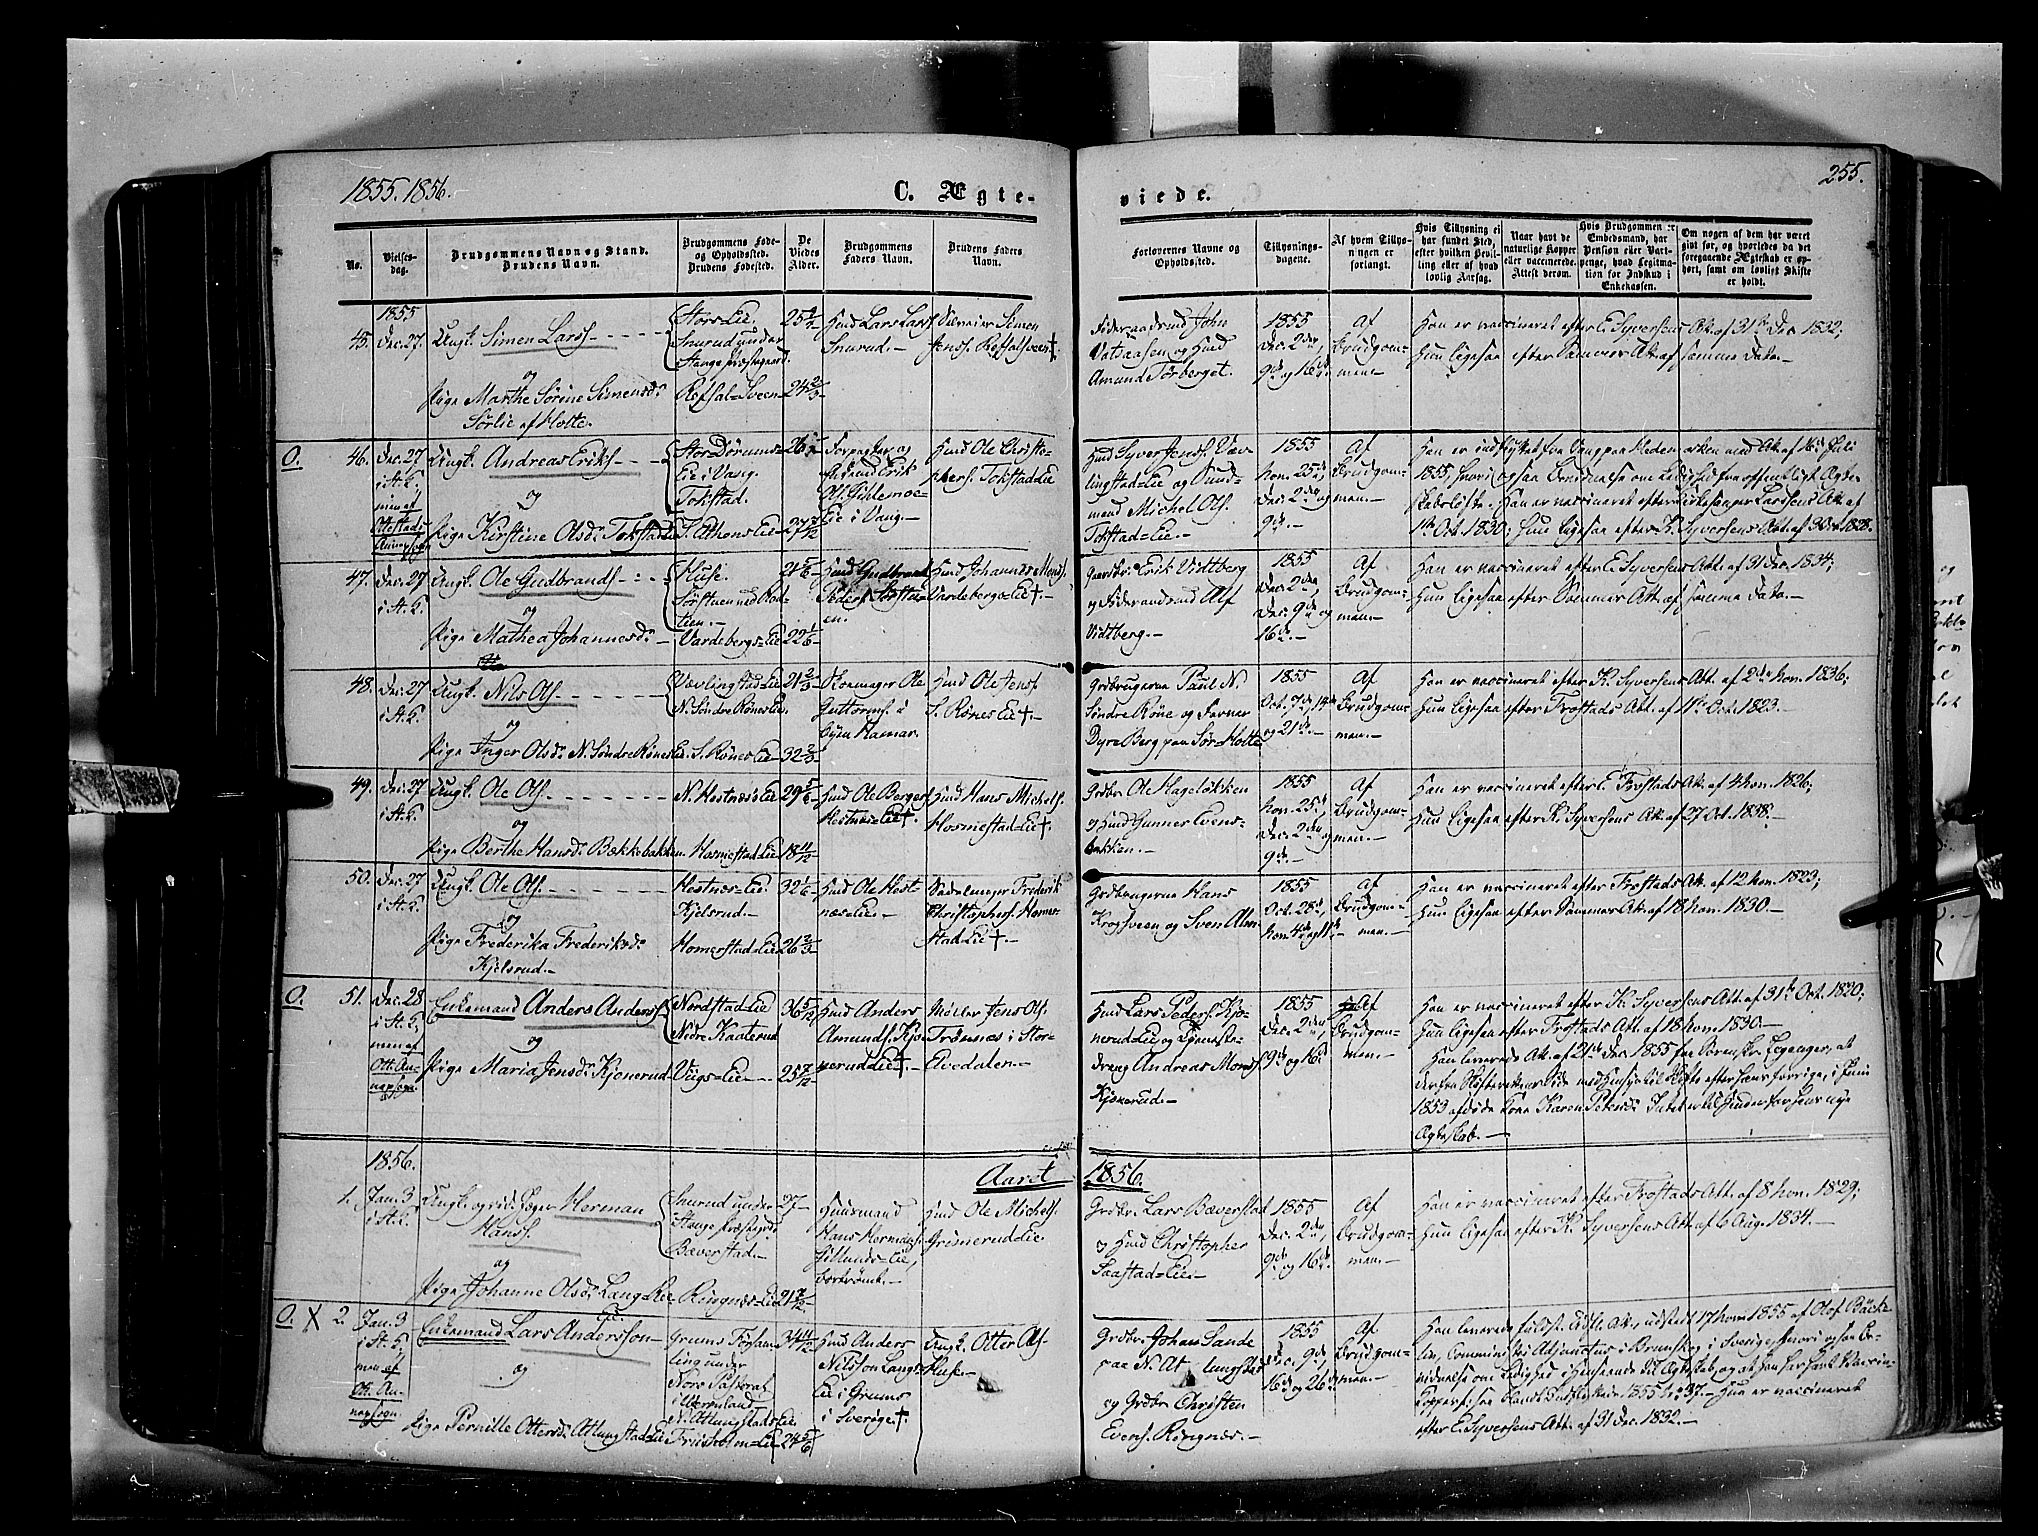 1855. 1856.
C. Ægte-
viede.
255.
No.
Vielses-
dag.
Brudgommens Navn og Stand.
Brudens Navn.
Brudgommens Føde-
og Opholdssted.
Brudens Fødested.
De
Viedes
Alder.
Brudgommens
Faders Navn.
Brudens Faders
Navn.
Forlovernes Navne og
Opholdssted.
Tillysnings-
dagene.
Af hvem Tillys-
ningen er
forlangt.
Hvis Tillysning ei
har fundet Sted,
efter hvilken Bevil-
ling eller af hvad
lovlig Aarsag.
Naar havt de
naturlige Kopper
eller vaccinerede.
Attest derom.
Hvis Brudgommen er
Embedsmand, har
Pension eller Vart-
penge, hvad Legitima-
tion for Indskud i
Enkekassen.
Om nogen af dem har været
gift før, og hvorledes da det
foregaaende Ægteskab er op-
hørt, samt om lovligt Skifte
er holdt.
1855
45. Dec. 27. Ungk. Simen Lars.
og
Pige Marthe Sørine Simensd.
Sørlie af Holte.
Stors Eie.
Snurud under
Stange Præstegjeld.
Refsal-Sveen
25 24 2/3
Hmd Lars Lars.
Snurud.
Simen
Jens. Refsalsveen †.
Føderaadsmd John
Vatsaasen og Hmd
Amund Torberget.
1855
Dec. 2den,
9de og 16de
Af
Brudgom-
men.
Han er vaccineret efter E. Syversens Att. af 31te Dec. 1832;
Hun ligesaa efter Sammes Att. af samme Dato.
O. 46. Dec. 27
i St. K.
men af
Ottestads
Annexsogn
Ungk. Andreas Eriks.
og
Pige Kirstine Olsd. Tokstad Eie
Eie i Vang.
Tokstad.
27 7/12
Forpagter og
Erik
Ols.
Eie i Vang.
Hmd Ole Christo-
phers. Tokstad-Eie
Hmd Syver Jens. Væv-
lingstad-Eie og Huus-
mand Michel Ols.
Tokstad-Eie.
1855
Nov. 25de,
Dec. 2den og
9de.
Af
Brudgom-
men.
Han er indflyttet fra Vang paa Hedemarken med Att. af Juli
1855, hvori ogsaa Bevidnelse om Ledighed fra offentligt Ægte-
skabsløfte. Han er vaccineret efter Kirkesanger Larsens Att. af
1te Oct. 1830; Hun ligesaa efter K. Syversens Att. af 1828.
47. Dec. 27
i St. K.
Ungk. Ole Gudbrands.
og
Pige Mathea Johannesd.
Huse.
Sørstuen ved Rod-
tien.
Vardebergs-Eie
22 1/6
Hmd Gudbrand
Peders. Sørstu-
en.
Hmd Johannes Mons.
Vardebergs-Eie †.
Gaardbr. Erik Vidtberg
og Føderaadsmd Alf
Vidtberg.
1855
Dec. 2den,
Dec. 9de og
16de.
Af
Brudgom-
men.
Han er vaccineret efter E. Syversens Att. af 31 Dec. 1834;
Hun ligesaa efter Sammes Att. af samme Dato.
48. Dec. 27
i St. K.
Ungk. Nils Ols.
og
Pige Inger Olsd. N. Søndre Rønes Eie.
Vævlingstad-Eie
N. Søndre Rønes Eie.
S. Rønes Eie
21 2/3
32 2/3
Skomager Ole
Guttorms. i
Byen Hamar.
Hmd Ole Jens.
S. Rønes Eie †.
Grdbrugerne Paul N.
Søndre Røne og Farver
Dyre Berg paa Sør-Holte
1855
Oct. 7de, 14de
og 21de.
Af
Brudgom-
men.
Han er vaccineret efter K. Syversens Att. af 2den Nov. 1836;
Hun ligesaa efter Frostads Att. af 11te Oct. 1823.
49. Dec. 27
i St. K.
Ungk. Ole Ols.
og
Pige Berthe Hansd. Bækkebakken.
N. Hestnæs Eie
Hosmestad-Eie
29 5/6
18 11/12
Hmd Ole Berger
Hestnæs-Eie †.
Hmd Hans Michels.
Hosmestad-Eie †.
Grdbr. Ole Hageløkken
og Hmd Gunner Evens-
bakken.
1855
Nov. 25de,
Dec. 2den og
9de.
Af
Brudgom-
men.
Han er vaccineret efter E. Frostads Att. af 4 Nov. 1826;
Hun ligesaa efter K. Syversens Att. af 27 Oct. 1838.
50. Dec. 27
i St. K.
Ungk. Ole Ols.
og
Pige Frederika Frederiksd.
Kjelsrud.
Hestnæs-Eie.
Kjelsrud.
Homerstad-Eie
32 1/6
26 2/3
Hmd Ole Hest-
næs-Eie.
Sadelmager Frederik
Christophers. Homer-
stad-Eie †.
Grdbrugerne Hans
Krogsveen og Sven Alm.
1855
Oct. 28de,
Nov. 4de og 11te
Af
Brudgom-
men.
Han er vaccineret efter Frostads Att. af 12 Nov. 1823;
Hun ligesaa efter Sammes Att. af 18 Nov. 1830.
O. 51. Dec. 28
i St. K.,
men af
Ott. An-
nexsogn
Enkemand Anders Anders.
og
Pige Maria Jensd. Kjonerud
Nordstad-Eie
Nedre Kaaterud
Viigs-Eie
36 5/12
25 7/12
Hmd Anders
Amunds. Kjo-
nerud Eie †.
Møller Jens Ols.
Trønnes i Stor-
Elvedalen.
Hmd Lars Peders. Kjo-
nerud-Eie og Tjeneste-
dreng Andreas Mons.
Kjonerud.
1855
Dec. 2den,
9de og 16de
Af
Brudgom-
men.
Han er vaccineret efter K. Syversens Att. af 31te Oct. 1820;
Hun ligesaa efter Frostads Att. af 18 Nov. 1830.
Han leverede Att. af 21de Dec. 1855 fra Sorenskr. Feganger, at
der fra Skifterettens Side med Hensyn til Skifte efter hans forrige, i Juni
1853 afdøde Kone Karen Pedersd. Intet er til Hinder for hans nye
Ægteskab.
1856.
Aaret
1856.
1. Jan. 3
i St. K.
Ungk. og rid. Jæger Herman
Hans.
og
Pige Johanne Olsd. Lang Rie
Eie.
Snurud under
Stange Præstegjeld
Bæverstad.
Ringnæs-Eie
27
21 7/12
Huusmand
Hans Hermans.
Gillunds-Eie,
bortrømt.
Hmd Ole Michels.
Grimerud Eie.
Grdbr. Lars Bæverstad
og Hmd Christopher
Saastad-Eie.
1855
Dec. 2den,
9de og 16de.
Af
Brudgom-
men.
Han er vaccineret efter Frostads Att. af 8 Nov. 1829;
Hun ligesaa efter K. Syversens Att. af 6 Aug. 1834.
O. X 2. Jan. 3
i St. K.
men af
Ott. An-
nexsogn
Enkemand Lars Andersson
og
Pige Pernille Ottersd. Atlungstad-Eie
Grums Forsam-
ling under
Nors Pastorat
i Wermland
N. Atlungstads Eie
Friisholm-Eie
34 11/12
24 5/6
Hmd Anders
Nilsson Langt
Eie i Grums
i Sverige †.
Ungk. Otter Ols.
Huse.
Grdbr. Johan Sande
paa N. Atlungstad
og Grdbr. Christen
Evens. Ringnæs.
1855
Dec. 9de,
16de og 26de
Af
Brudgom-
men.
Han leverede fuldst. Udfl. Att., udstedt 17 Nov. 1855 af Olof Bäck-
lin, Comministri Adjunctus i Brunskog i Sverige, hvori ogsaa Be-
vidnelse om Ledighed i Henseende til Ægteskab, og at han har havt Vaccin-
Kopper.
efter E. Syversens Att. af 31 Dec. 1832.